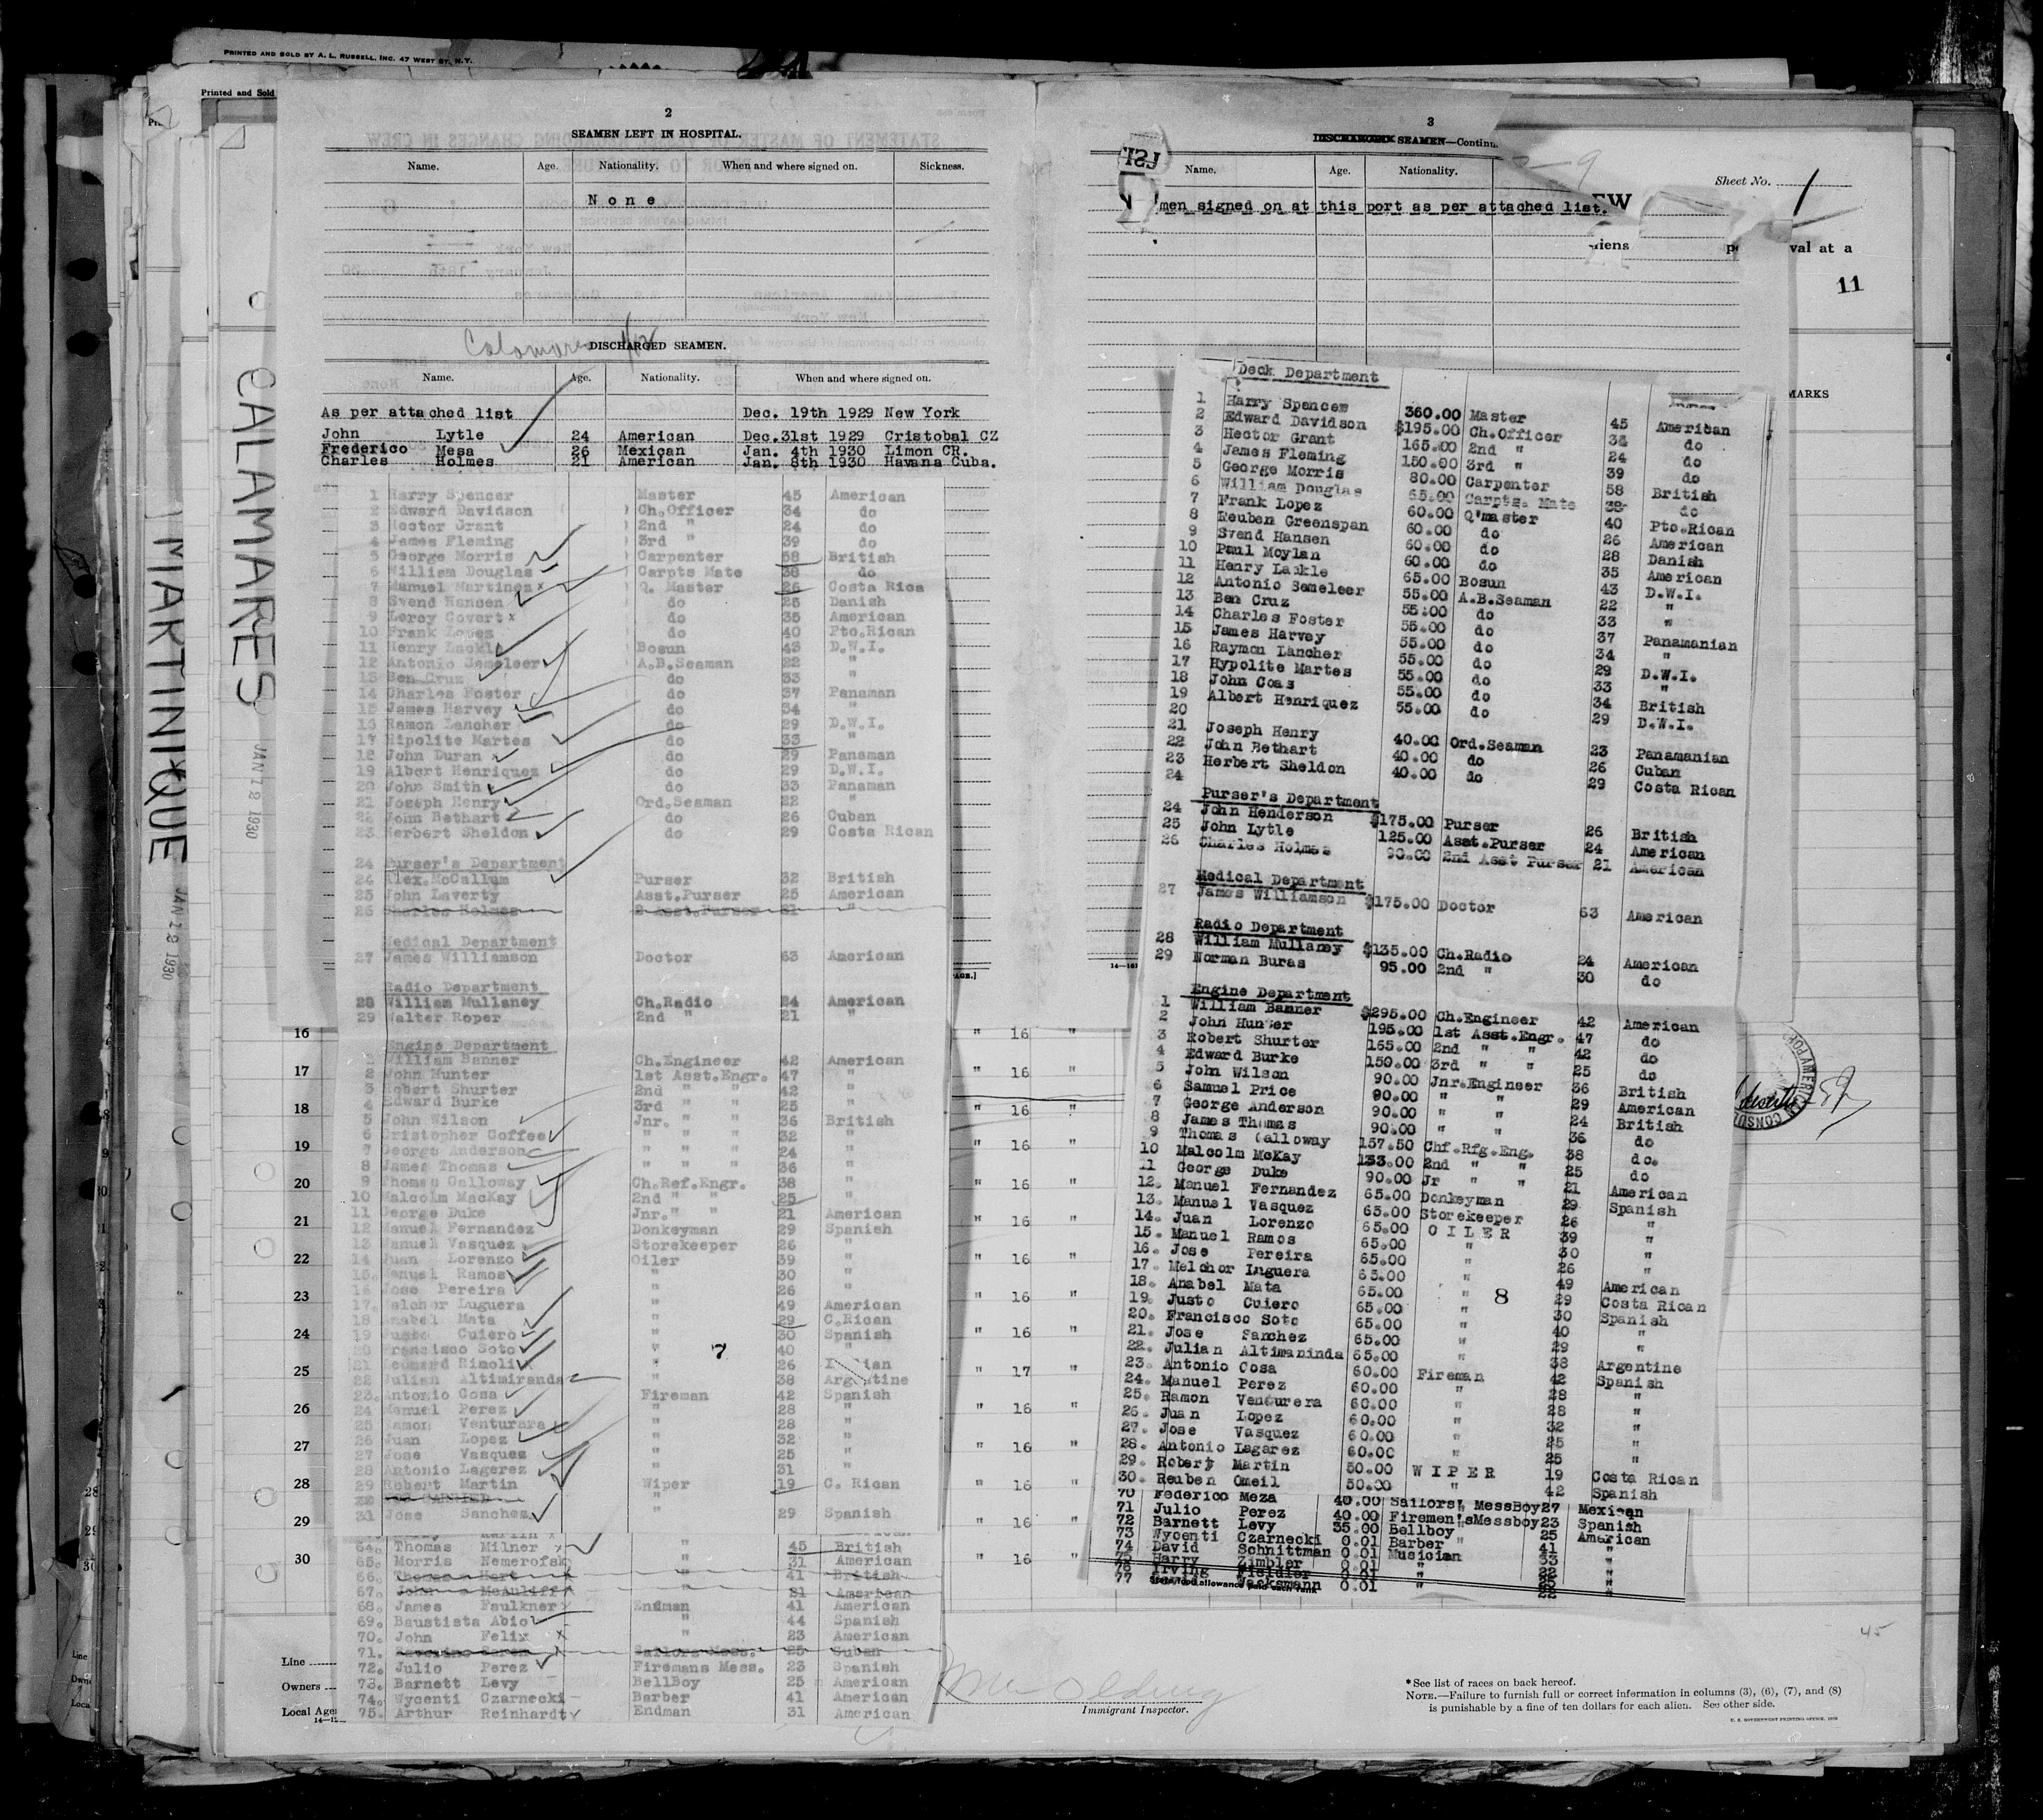 PRINTED AND SOLD BY A. L. RUSSELL, INC. 47 WEST ST., N.Y.
Printed and Sold
MARTINIQUE JAN 12 1930
CALAMARES JAN 12 1930
2
SEAMEN LEFT IN HOSPITAL.
Name. Age. Nationality. When and where signed on. Sickness.
None
Calamares 1/12
DISCHARGED SEAMEN.
Name. Age. Nationality. When and where signed on.
As per attached list Dec. 19th 1929 New York
John Lytle 24 American Dec.31st 1929 Cristobal CZ
Frederico Mesa 26 Mexican Jan. 4th 1930 Limon CR.
Charles Holmes 21 American Jan. 8th 1930 Havana Cuba.
1 Harry Spencer Master 45 American
2 Edward Davidson Ch.Officer 34 do
3 Hector Grant 2nd " 24 do
4 James Fleming 3rd " 39 do
5 George Morris Carpenter 58 British
6 William Douglas Carpts Mate 38 do
7 Manuel Martinez x Q. Master 26 Costa Rica
8 Svend Hansen do 25 Danish
9 Leroy Covert x do 35 American
10 Frank Lopez do 40 Pto.Rican
11 Henry Lackle Bosun 43 D.W.I.
12 Antonio Semeleer A.B.Seaman 22 "
13 Ben Cruz do 33 "
14 Charles Foster do 37 Panaman
15 James Harvey do 34 "
16 Ramon Lancher do 29 D.W.I.
17 Hipolite Martes do 33 "
18 John Duran do 29 Panaman
19 Albert Henriquez do 29 D.W.I.
20 John Smith do 33 Panaman
21 Joseph Henry Ord.Seaman 22 "
22 John Bethart do 26 Cuban
23 Herbert Sheldon do 29 Costa Rican
24 Purser's Department
24 Alex.McCallum Purser 32 British
25 John Laverty Asst.Purser 25 American
26 Charles Holmes 2 Asst.Purser 21 "
Medical Department
27 James Williamson Doctor 63 American
Radio Department
28 William Mullaney Ch.Radio 24 American
29 Walter Roper 2nd " 21 "
Engine Department
1 William Banner Ch.Engineer 42 American
2 John Hunter 1st Asst.Engr. 47 "
3 Robert Shurter 2nd " " 42 "
4 Edward Burke 3rd " " 25 "
5 John Wilson Jnr. " " 36 British
6 Cristopher Coffee " " " 32 "
7 George Anderson " " " 24 "
8 James Thomas " " " 36 "
9 Thomas Galloway Ch.Ref.Engr. 38 "
10 Malcolm MacKay 2nd " " 25 "
11 George Duke Jnr. " " 21 American
12 Manuel Fernandez Donkeyman 29 Spanish
13 Manuel Vasquez Storekeeper 26 "
14 Juan Lorenzo Oiler 39 "
15. Manuel Ramos " 30 "
16 Jose Pereira " 26 "
17. Melchor Luguera " 49 American
18 Anabel Mata " 29 C.Rican
19 Justo Cuiero " 30 Spanish
20 Francisco Soto " 40 "
21 Leonard Rimoli " 26
22 Julian Altimiranda " 38 Argentine
23. Antonio Cosa Fireman 42 Spanish
24 Manuel Perez " 28 "
25 Ramon Venturara " 28 "
26 Juan Lopez " 32 "
27 Jose Vasquez " 25 "
28 Antonio Lagerez " 31 "
29 Robert Martin Wiper 19 C. Rican
31 Jose Sanchez " 29 Spanish
7
64. Thomas Milner x " 45 British
65. Morris Nemerofsk " 31 American
66. Thomas Hart " 41 British
67. John McAuliff " 21 American
68. James Faulkner x Endman 41 American
69. Baustista Abio " 44 Spanish
70. John Felix x " 23 American
71. Sailors Mess. 25 Cuban
72. Julio Perez Firemans Mess. 23 Spanish
73. Barnett Levy BellBoy 25 American
74. Wycenti Czarnecki Barber 41 American
75. Arthur Reinhardt Endman 31 American
16
17
18
19
20
21
22
23
24
25
26
27
28
29
30
Line
Owners
Local Age
" 16 "
" 16 "
" 16 "
" 16 "
" 16 "
" 16 "
" 16 "
" 16 "
" 16 "
" 17 "
" 16 "
" 16 "
" 16 "
" 16 "
" 16 "
Immigrant Inspector.
3
DISCHARGED SEAMEN—Continu
Name. Age. Nationality.
men signed on at this port as per attached list.
EW
Sheet No. 1
iens
val at a
11
MARKS
Deck Department
1 Harry Spencer 360.00 Master 45 American
2 Edward Davidson $195.00 Ch.Officer 34 do
3 Hector Grant 165.00 2nd " 24 do
4 James Fleming 150.00 3rd " 39 do
5 George Morris 80.00 Carpenter 58 British
6 William Douglas 65.00 Carpts. Mate 38 do
7 Frank Lopez 60.00 Q'master 40 Pto.Rican
8 Reuben Greenspan 60.00 do 26 American
9 Svend Hansen 60.00 do 28 Danish
10 Paul Moylan 60.00 do 35 American
11 Henry Lackle 65.00 Bosun 43 D.W.I.
12 Antonio Semeleer 55.00 A.B.Seaman 22 "
13 Ben Cruz 55.00 do 33 "
14 Charles Foster 55.00 do 37 Panamanian
15 James Harvey 55.00 do 34 "
16 Raymon Lancher 55.00 do 29 D.W.I.
17 Hypolite Martes 55.00 do 33 "
18 John Coas 55.00 do 34 British
19 Albert Henriquez 55.00 do 29 D.W.I.
20
21 Joseph Henry 40.00 Ord.Seaman 23 Panamanian
22 John Bethart 40.00 do 26 Cuban
23 Herbert Sheldon 40.00 do 29 Costa Rican
24
Purser's Department
24 John Henderson $175.00 Purser 26 British
25 John Lytle 125.00 Asst.Purser 24 American
26 Charles Holmes 90.00 2nd Asst Purser 21 American
Medical Department
27 James Williamson $175.00 Doctor 63 American
Radio Department
28 William Mullaney $135.00 Ch.Radio 24 American
29 Norman Buras 95.00 2nd " 30 do
Engine Department
1 William Banner $295.00 Ch.Engineer 42 American
2 John Hunter 195.00 1st Asst.Engr. 47 do
3 Robert Shurter 165.00 2nd " " 42 do
4 Edward Burke 150.00 3rd " " 25 do
5 John Wilson 90.00 Jnr.Engineer 36 British
6 Samuel Price 90.00 " " 29 American
7 George Anderson 90.00 " " 24 British
8 James Thomas 90.00 " " 36 do
9 Thomas Galloway 157.50 Chf.Rfg.Eng. 38 do.
10 Malcolm McKay 133.00 2nd " " 25 do
11 George Duke 90.00 Jr " " 21 American
12. Manuel Fernandez 65.00 Donkeyman 29 Spanish
13. Manuel Vasquez 65.00 Storekeeper 26 "
14. Juan Lorenzo 65.00 OILER 39 "
15. Manuel Ramos 65.00 " 30 "
16. Jose Pereira 65.00 " 26 "
17. Melchor Luguera 65.00 " 49 American
18. Anabel Mata 65.00 " 29 Costa Rican
19. Justo Cuiero 65.00 " 30 Spanish
20. Francisco Soto 65.00 " 40 "
21. Jose Sanchez 65.00 " 29 "
22. Julian Altimaninda 65.00 " 38 Argentine
23. Antonio Cosa 60.00 Fireman 42 Spanish
24. Manuel Perez 60.00 " 28 "
25. Ramon Venturera 60.00 " 28 "
26. Juan Lopez 60.00 " 32 "
27. Jose Vasquez 60.00 " 25 "
28. Antonio Lagarez 60.00 " 25 "
29. Robert Martin 50.00 WIPER 19 Costa Rican
30. Reuben Omeil 50.00 " 42 Spanish
8
70 Federico Meza 40.00 Sailors' MessBoy 27 Mexican
71 Julio Perez 40.00 Firemen'sMessboy 23 Spanish
72 Barnett Levy 35.00 Bellboy 25 American
73 Wycenti Czarnecki 0.01 Barber 41 "
74 David Schnittman 0.01 Musician 33 "
75 Harry Zimbler 0.01 " 22 "
76 Irving Fieldler 0.01 "
77 Wacksmann 0.01 " 22 "
45
*See list of races on back hereof.
NOTE.—Failure to furnish full or correct information in columns (3), (6), (7), and (8)
is punishable by a fine of ten dollars for each alien. See other side.
U. S. GOVERNMENT PRINTING OFFICE